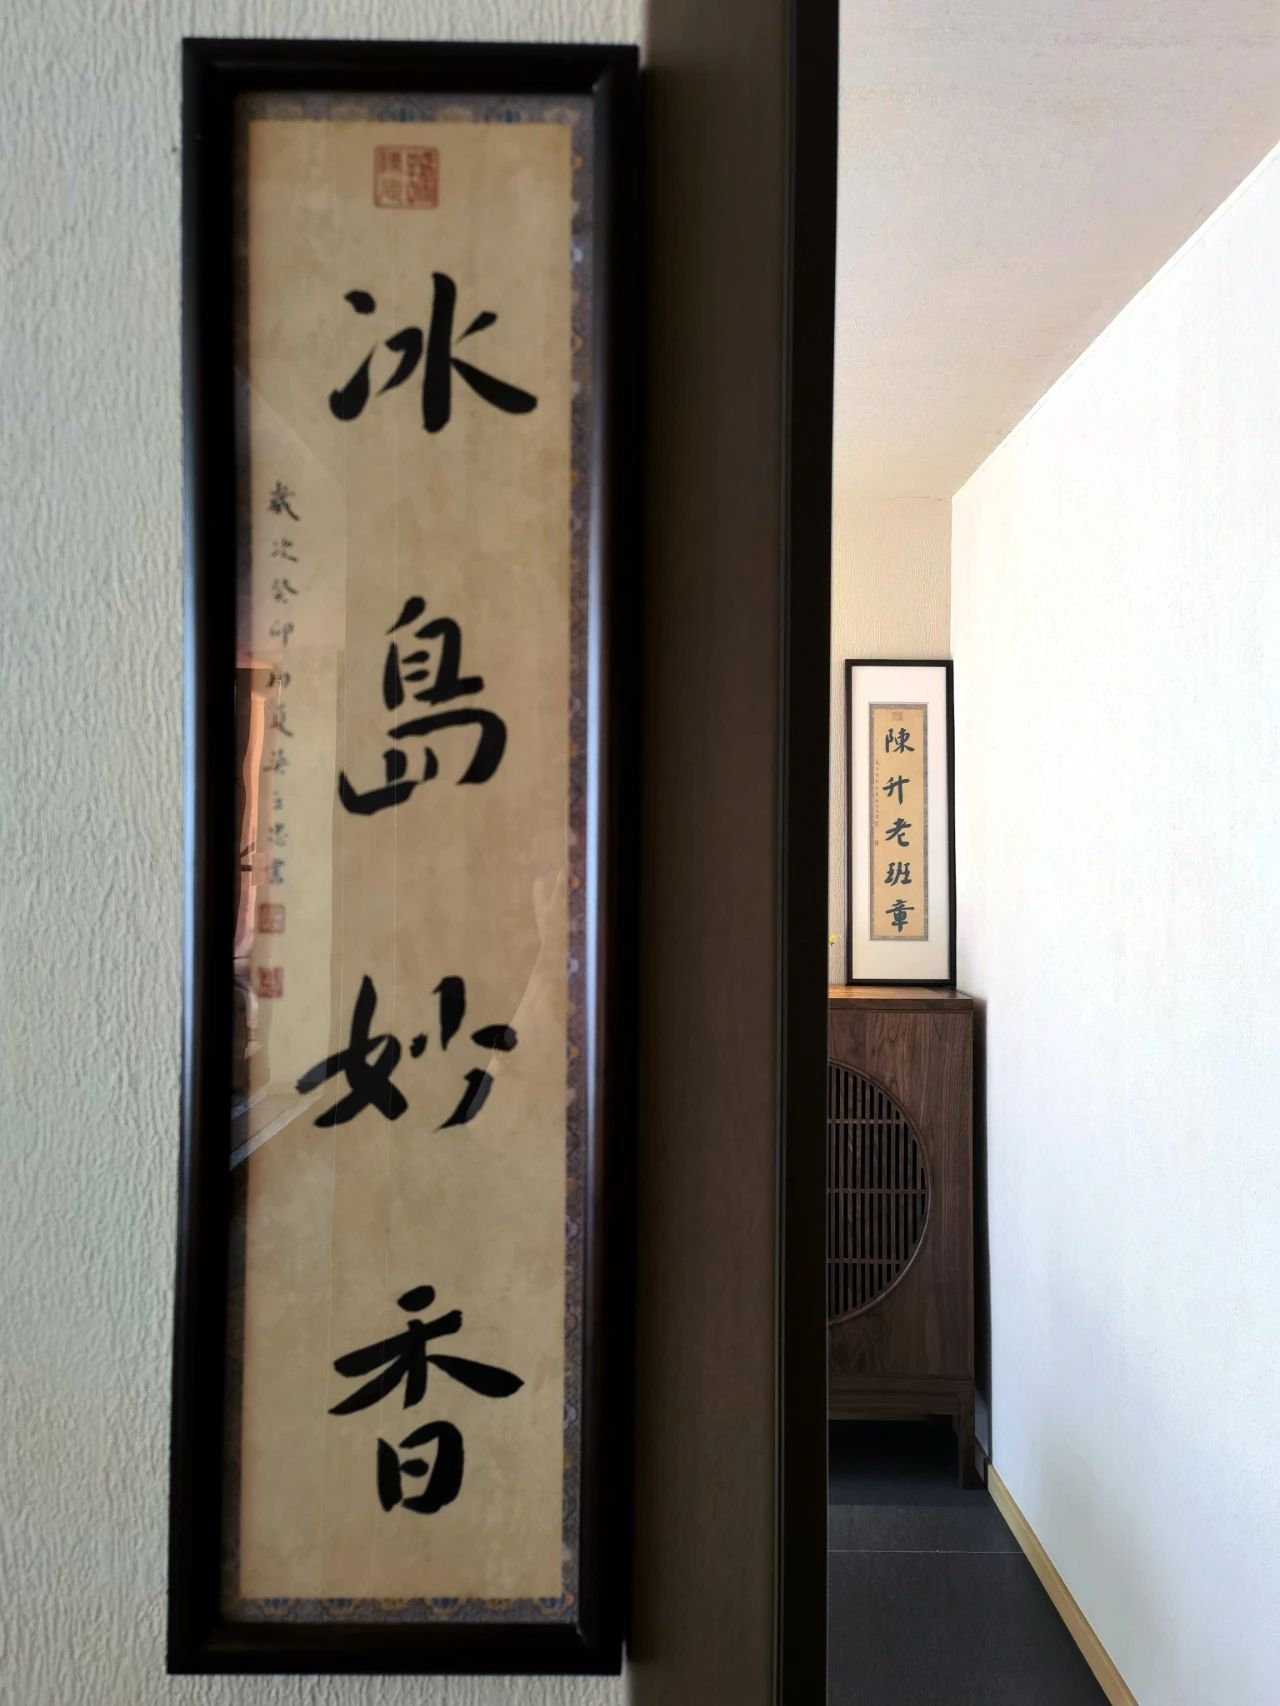 冰島妙香
歲次癸卯初夏吳立忠書
陳升老班章